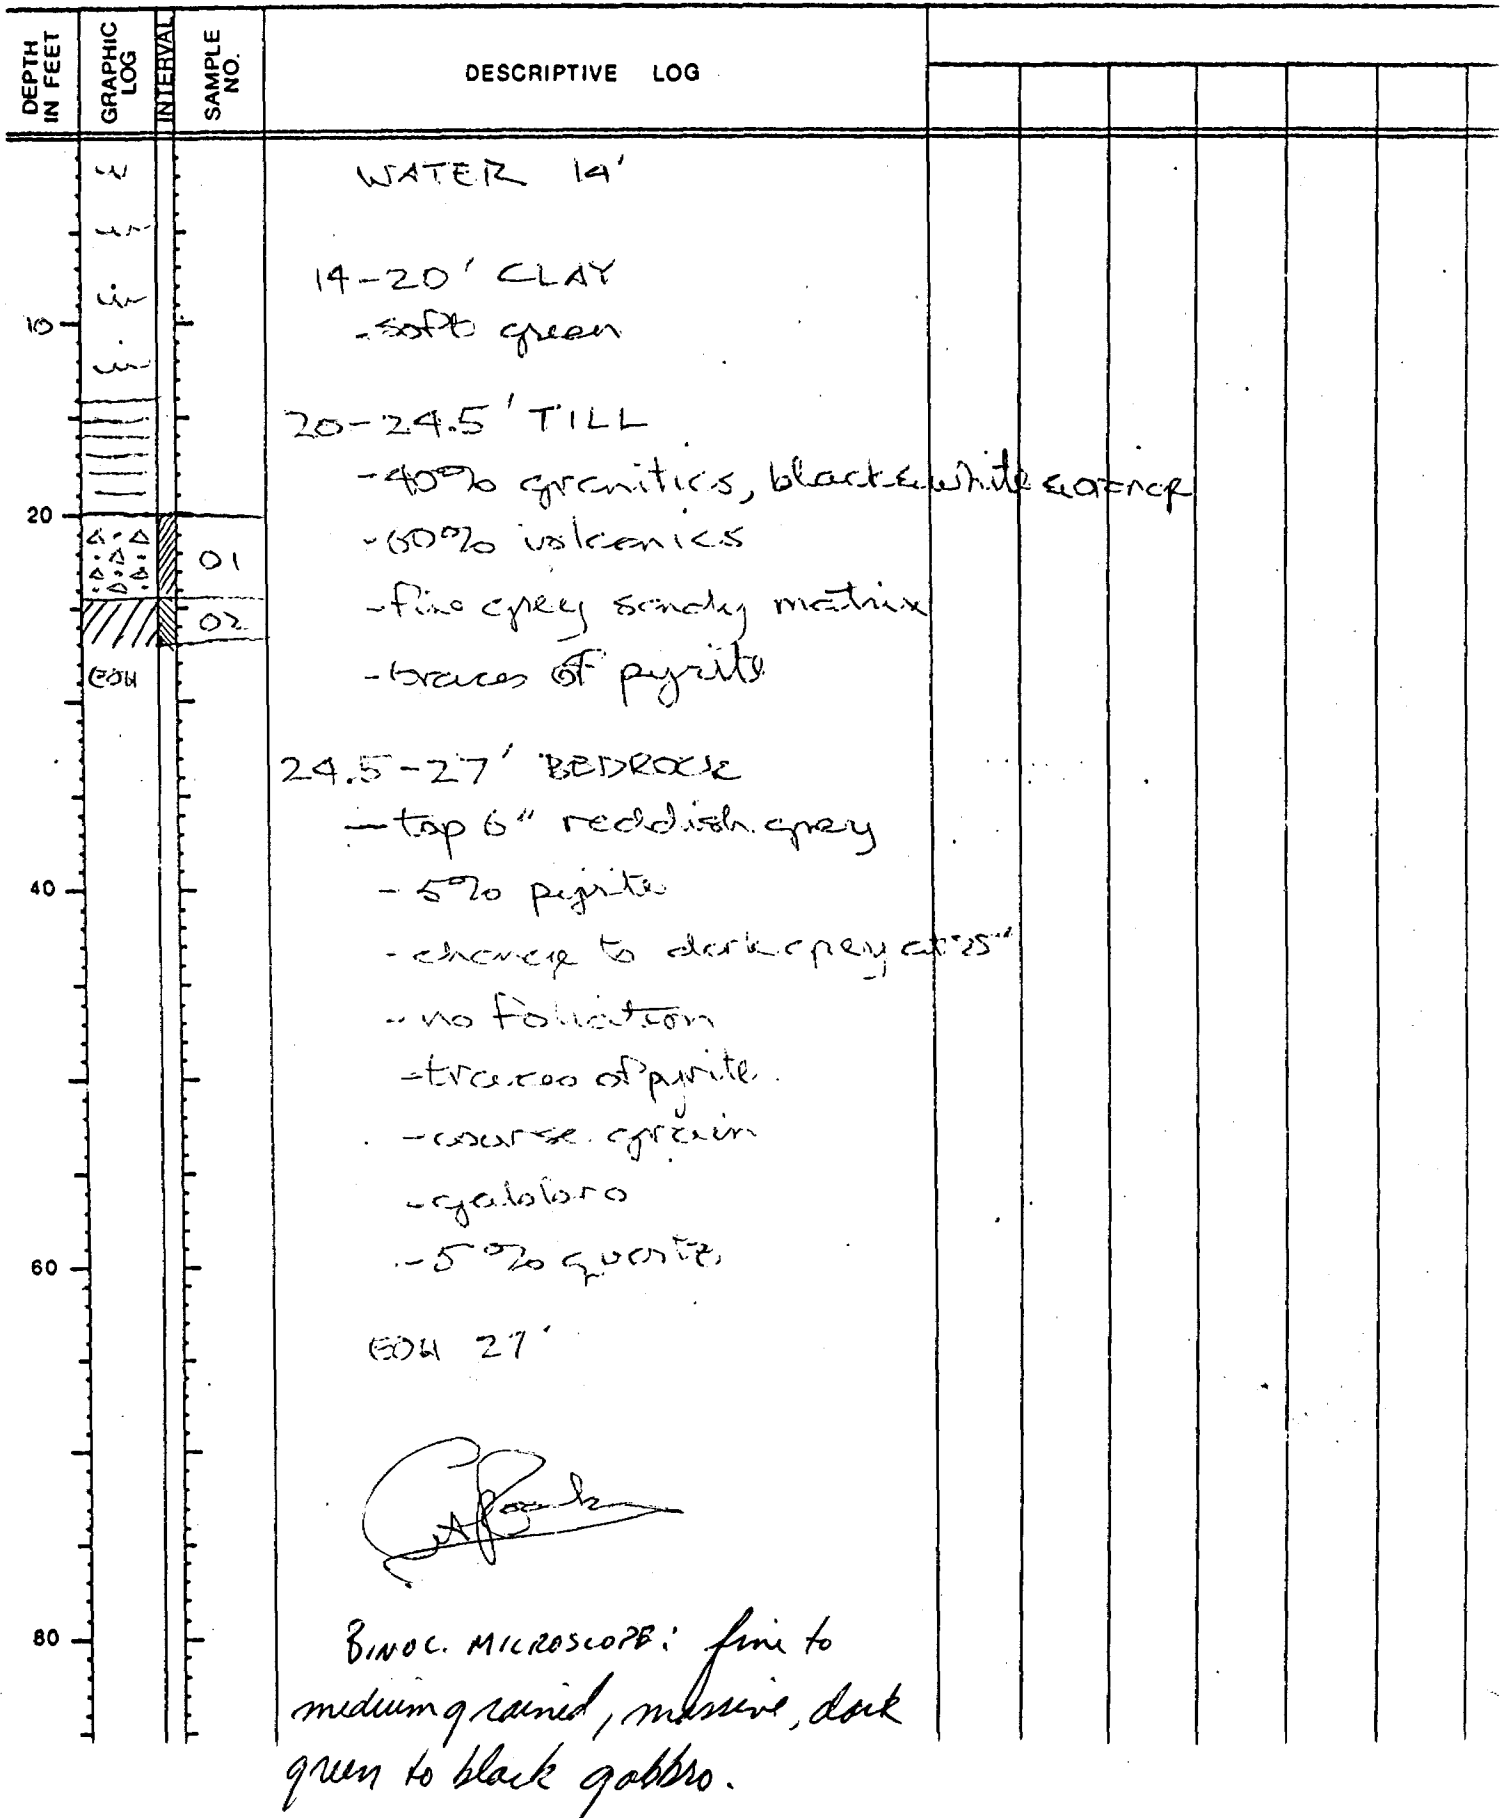 DEPTH IN FEET
GRAPHIC LOG
INTERVAL
SAMPLE NO.
DESCRIPTIVE LOG
WATER 14'
14-20' CLAY
- soft green
10
20-24.5' TILL
- 40% granitics, black & white &
20
- 60% volcanics
01
- fine grey sandy matrix
02
- traces of pyrite
EOH
24.5-27' BEDROCK
- top 6" reddish grey
- 5% pyrite
40
- change to dark grey at 25"
- no foliation
- traces of pyrite
- course grain
- gabbro
- 5% quartz
60
EOH 27'
BINOC. MICROSCOPE: fine to
medium grained, massive, dark
green to black gabbro.
80